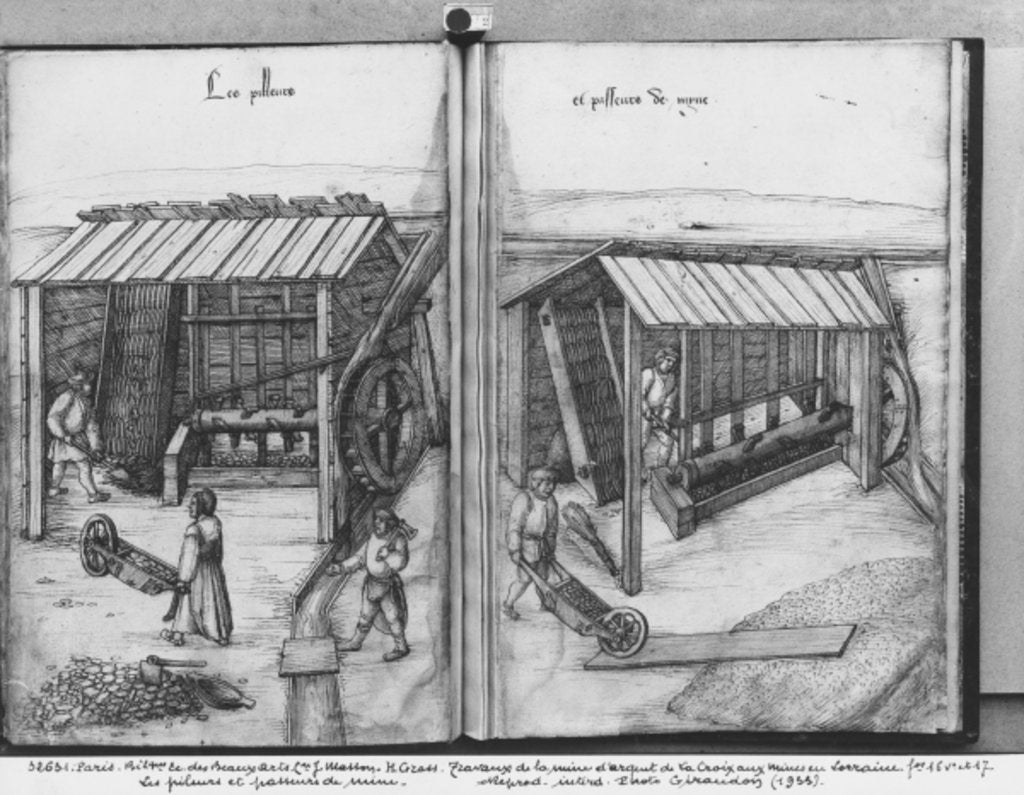 Les pilleurs
et passeurs de myne.
32631. Paris. Bibl^que Ec. des Beaux arts C^on J. Masson. H. Gross. Travaux de la mine d'argent de La Croix aux Mines en Lorraine. f^os 16 v° et 17
Les pileurs et passeurs de mine. Reprod. interd. Photo Giraudon (1933).